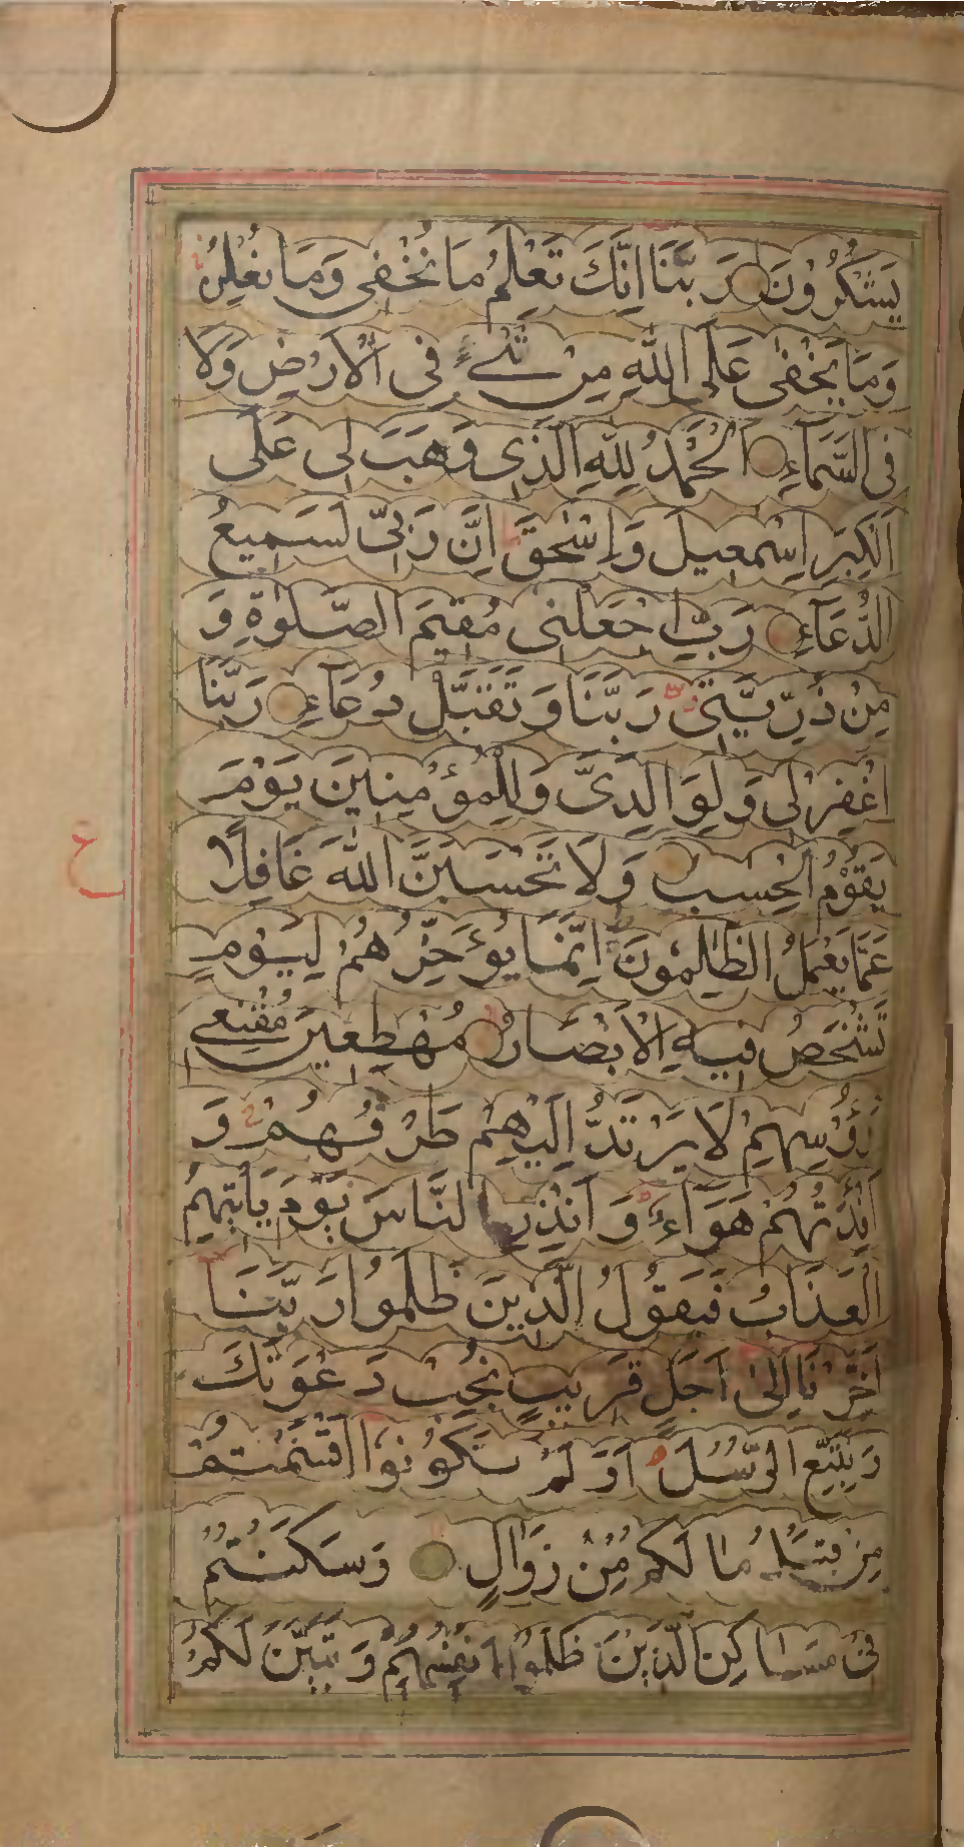 يَشْكُرُوْنَ رَبَّنَا اِنَّكَ تَعْلَمُ مَا نُخْفِى وَمَا نُعْلِنُ
وَمَا يَخْفٰى عَلَى اللّٰهِ مِنْ شَىْءٍ فِى الْاَرْضِ وَلَا
فِى السَّمَآءِ اَلْحَمْدُ لِلّٰهِ الَّذِى وَهَبَ لِى عَلَى
الْكِبَرِ اِسْمٰعِيلَ وَاِسْحٰقَ اِنَّ رَبِّى لَسَمِيعُ
الدُّعَآءِ رَبِّ اجْعَلْنِى مُقِيْمَ الصَّلٰوةِ وَ
مِنْ ذُرِّيَّتِى رَبَّنَا وَتَقَبَّلْ دُعَآءِ رَبَّنَا
اغْفِرْ لِى وَلِوَالِدَىَّ وَلِلْمُؤْمِنِيْنَ يَوْمَ
يَقُوْمُ الْحِسَبُ وَلَا تَحْسَبَنَّ اللّٰهَ غَافِلًا
عَمَّا يَعْمَلُ الظّٰلِمُوْنَ اِنَّمَا يُؤَخِّرُهُمْ لِيَوْمٍ
تَشْخَصُ فِيهِ الْاَبْصَارُ مُهْطِعِيْنَ مُقْنِعِى
رُءُوْسِهِمْ لَا يَرْتَدُّ اِلَيْهِمْ طَرْفُهُمْ وَ
اَفْئِدَتُهُمْ هَوَآءٌ وَاَنْذِرِ النَّاسَ يَوْمَ يَأْتِيْهِمُ
الْعَذَابُ فَيَقُوْلُ الَّذِيْنَ ظَلَمُوْا رَبَّنَا
اَخِّرْنَا اِلٰى اَجَلٍ قَرِيْبٍ نُجِبْ دَعْوَتَكَ
وَنَتَّبِعِ الرُّسُلَ اَوَلَمْ تَكُوْنُوْا اَقْسَمْتُمْ
مِنْ قَبْلُ مَا لَكُمْ مِنْ زَوَالٍ وَسَكَنْتُمْ
فِى مَسَاكِنِ الَّذِيْنَ ظَلَمُوْا اَنْفُسَهُمْ وَتَبَيَّنَ لَكُمْ
ع